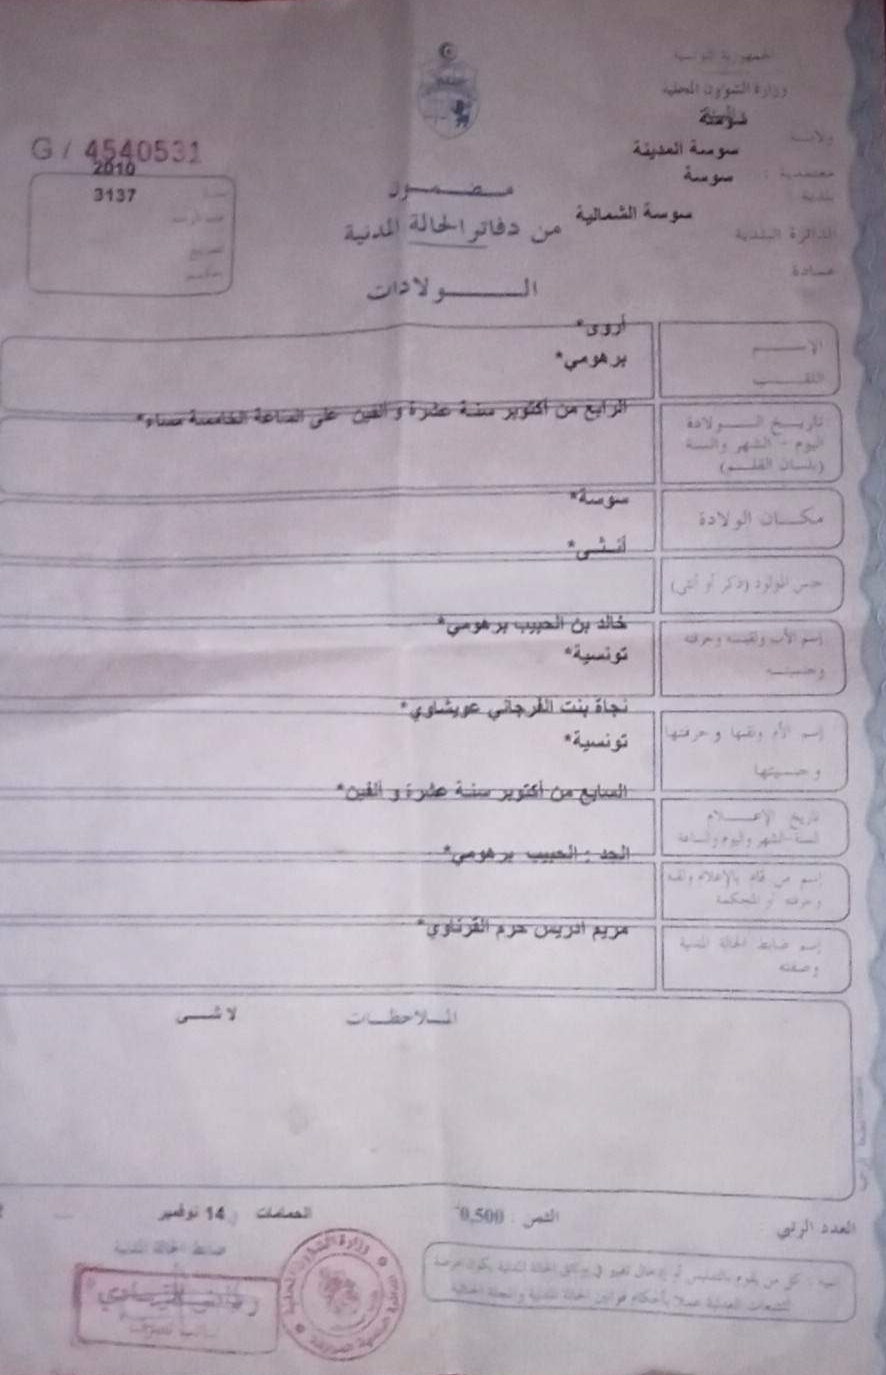 الجمهورية التونسية
وزارة الشؤون المحلية
ولاية سوسة
معتمدية : سوسة المدينة
بلدية سوسة
الدائرة البلدية سوسة الشمالية
عمادة
G / 4540531
2010
3137
مضمون
من دفاتر الحالة المدنية
الولادات
الإسم أروى*
اللقب برهومي*
تاريخ الولادة الرابع من أكتوبر سنة عشرة و ألفين على الساعة الخامسة مساء*
اليوم - الشهر والسنة
(بلسان القلم)
مكان الولادة سوسة*
جنس المولود (ذكر أو أنثى) أنثى*
إسم الأب ولقبه وحرفته خالد بن الحبيب برهومي*
وجنسيته تونسية*
إسم الأم ولقبها و حرفتها نجاة بنت الفرجاني عويشاوي*
و جنسيتها تونسية*
تاريخ الإعلام السابع من أكتوبر سنة عشرة و ألفين*
السنة الشهر واليوم والساعة
إسم من قام بالإعلام ولقبه الجد : الحبيب برهومي*
وحرفته أو المحكمة
إسم ضابط الحالة المدنية مريم ادريس حرم القرناوي*
وصفته
الملاحظات لا شى
العدد الرتبي
الثمن : 0,500
الحمامات 14 نوفمبر
ضابط الحالة المدنية
وزارة الشؤون المحلية